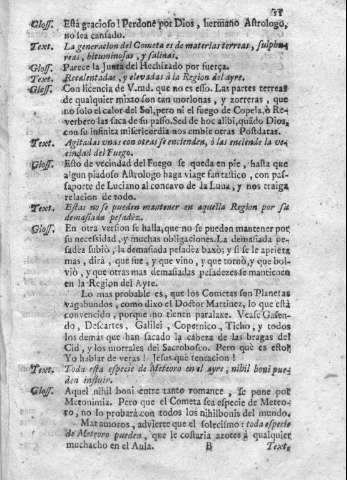 Gloss. Està gracioso! Perdone por Dios, hermano Astrologo,
no sea cansado.
Text. La generacion del Cometa es de materias terreas, sulphu-
reas, bituminosas, y salinas.
Gloss. Parece la Junta del Hechizado por fuerça.
Text. Retalentadas, y elevadas à la Region del ayre.
Gloss. Con licencia de V.md. que no es esso. Las partes terreas
de qualquier mixto son tan morlonas, y zorreras, que
no solo el calor del Sol, pero ni el fuego de Copela, ò Re-
verbero las saca de su passo. Sed de hoc alibi, quãdo Dios,
con su infinita misericordia nos embie otras Postdatas.
Text. Agitadas unas con otras se encienden, ò las enciende la ve-
cindad del Fuego.
Gloss. Esto de vecindad del Fuego se queda en pie, hasta que
algun piadoso Astrologo haga viage fantastico, con pas-
saporte de Luciano al concavo de la Luna, y nos trayga
relacion de todo.
Text. Estas no se pueden mantener en aquella Region por su
demasiada pesadèz.
Gloss. En otra version se halla, que no se puedan mantener por
su necessidad, y muchas obligaciones. La demasiada pe-
sadèz subiò, la demasiada pesadèz baxò; y si se le aprieta
mas, dirà, que fue, y que vino, y que tornò, y que bol-
viò, y que otras mas demasiadas pesadezes se mantienen
en la Region del Ayre.
Lo mas probable es, que los Cometas son Planetas
vagabundos, como dixo el Doctor Martinez, lo que està
convencido, porque no tienen paralaxe. Vease Gasen-
do, Descartes, Galilei, Copernico, Ticho, y todos
los demàs que han sacado la cabeza de las bragas del
Cid, y los morrales del Sacrobosco. Pero què es esto?
Yo hablar de veras! Jesus què tentacion!
Text. Toda esta especie de Meteoro en el ayre, nihil boni pue-
den influir.
Gloss. Aquel nihil boni entre tanto romance, se pone por
Metonimia. Pero que el Cometa sea especie de Meteo-
ro, no lo probarà con todos los nihilbonis del mundo.
Matamoros, advierte que el solecismo: toda especie
de Meteoro pueden, que le costaria azotes à qualquier
muchacho en el Aula.
B
Text.